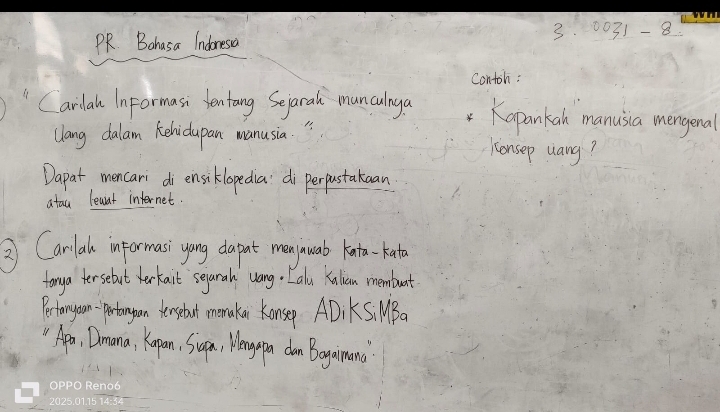 PR Bahasa Indonesia
3. 0031 - 8
" Carilah Informasi tentang Sejarah munculnya
Uang dalam kehidupan manusia. "
Dapat mencari di ensiklopedia di perpustakaan
atau lewat internet.
Contoh :
* Kapankah manusia mengenal
konsep uang ?
2 Carilah informasi yang dapat menjawab kata-kata
tanya tersebut terkait sejarah uang. Lalu Kalian membuat
Pertanyaan-pertanyaan tersebut memakai konsep ADiKSiMBa
" Apa, Dimana, Kapan, Siapa, Mengapa dan Bagaimana".
OPPO Reno6
2025.01.15 14:34